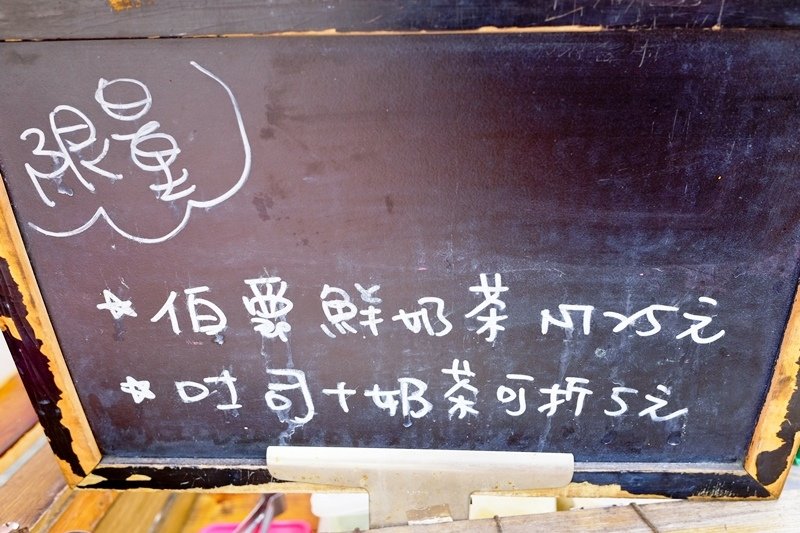 限量
☆伯爵鮮奶茶M25元
☆吐司+奶茶可折5元